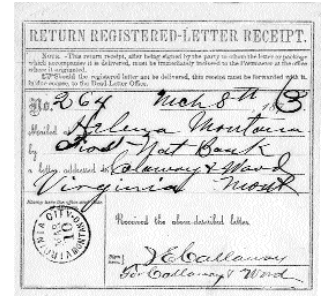 RETURN REGISTERED-LETTER RECEIPT.
NOTE.—This return receipt, after being signed by the party to whom the letter or package
which accompanies it is delivered, must be immediately inclosed to the Postmaster at the office
where it originated.
Should the registered letter not be delivered, this receipt must be forwarded with it,
to the Dead Letter Office.
No. 264 Mch 8th 1873
Mailed at Helena Montana
by First Nat Bank
a letter addressed to Callaway & Word
Virginia Mont
Received the above-described letter.
VIRGINIA CITY MONTANA
MAR
10
J E Callaway
For Callaway & Word